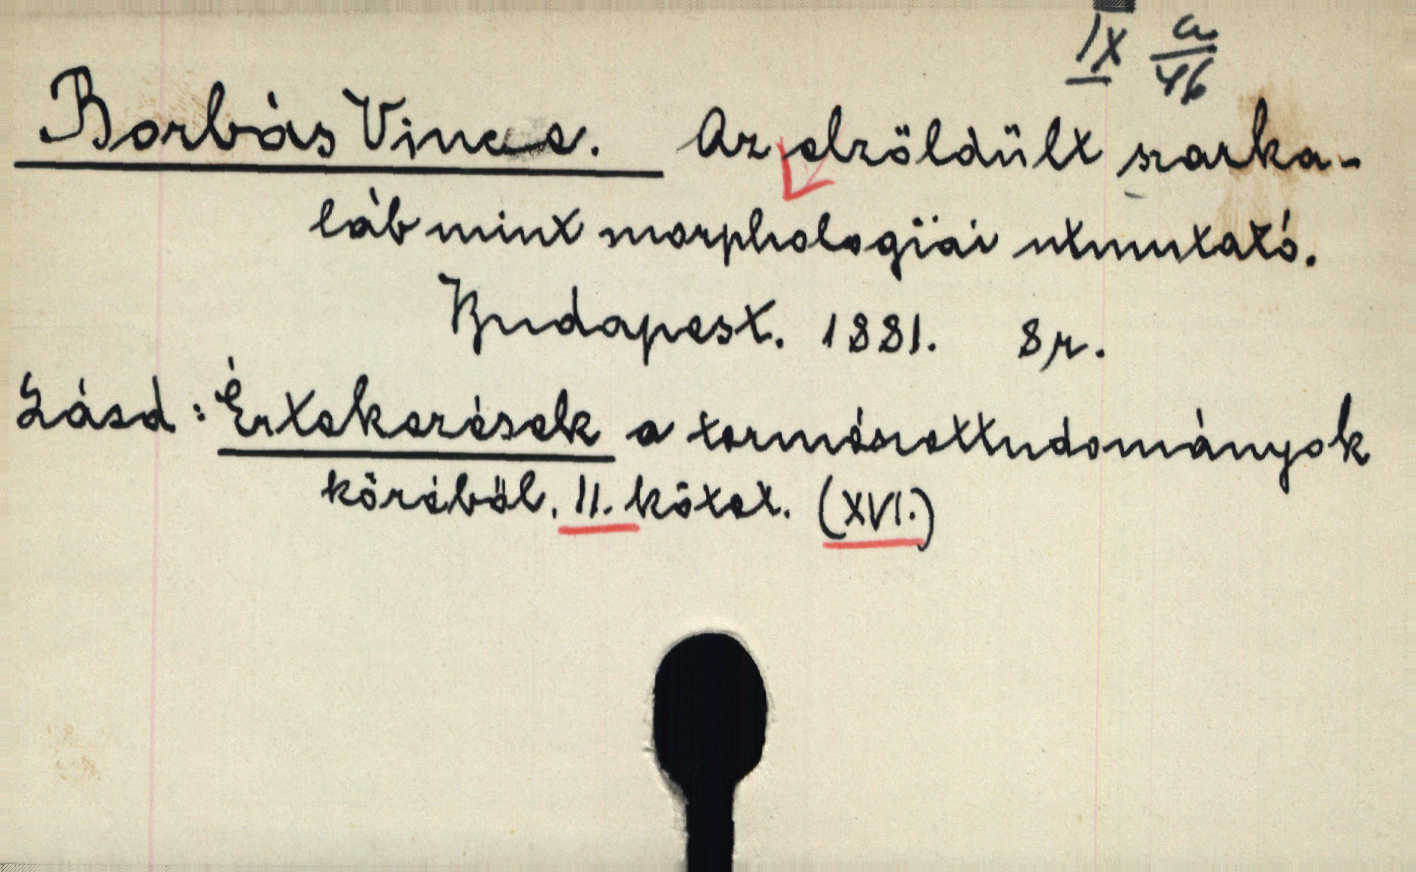 IX a/46
Borbás Vince. Az elzöldült szarka-
láb mint morphologiai utmutató.
Budapest. 1881. 8r.
Lásd: Értekezések a természettudományok
köréből. II. kötet. (XVI.)